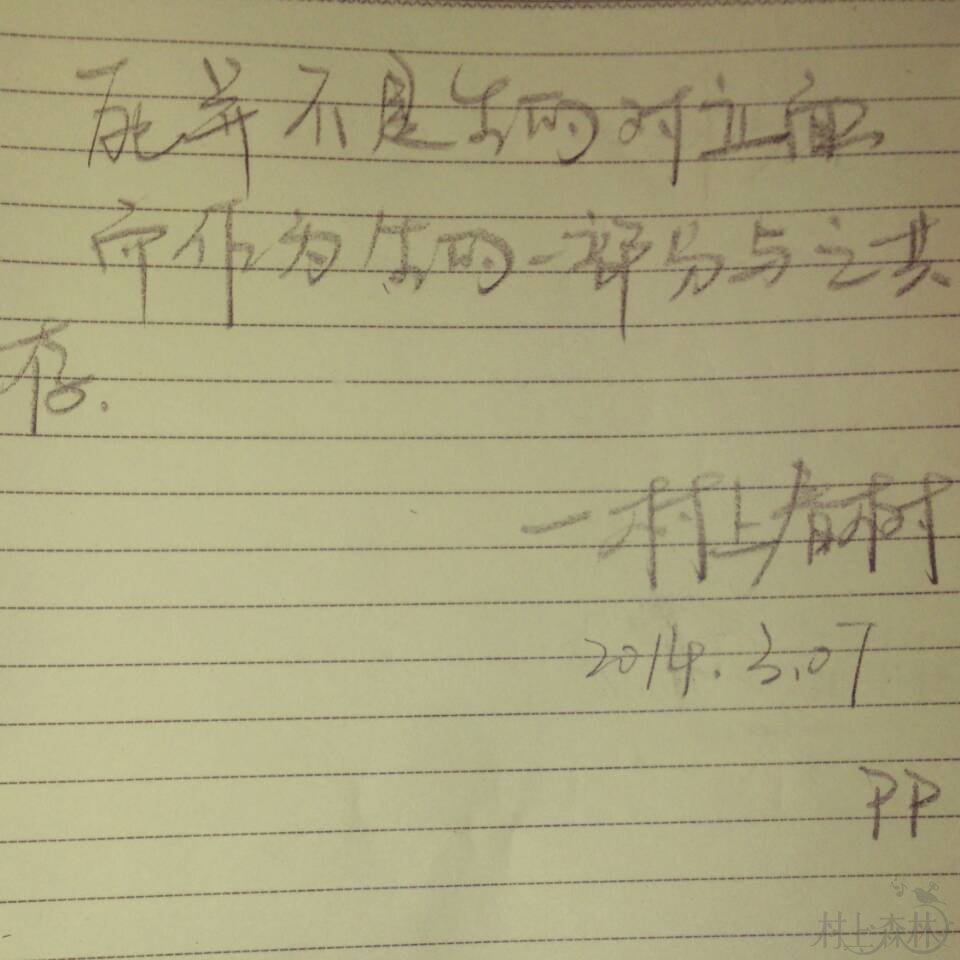 死并不是生的对立面
而作为生的一部分与之共
存.
—村上春树
2014.3.07
PP
村上森林